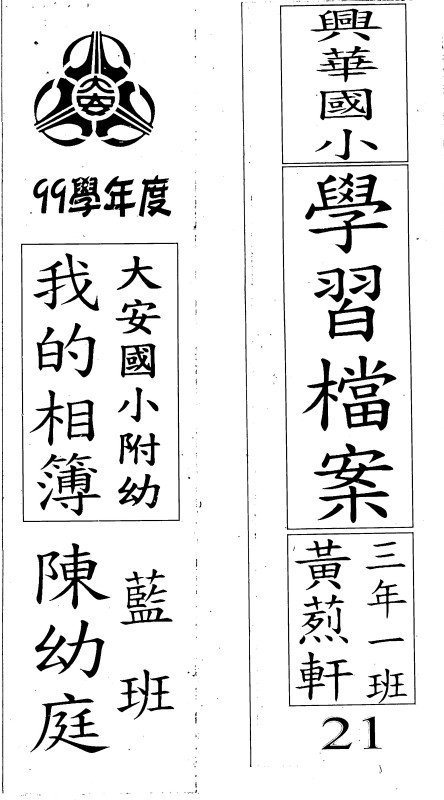 興華國小
學習檔案
三年一班
黃烈軒
21
大安
99學年度
大安國小附幼
我的相簿
藍班
陳幼庭